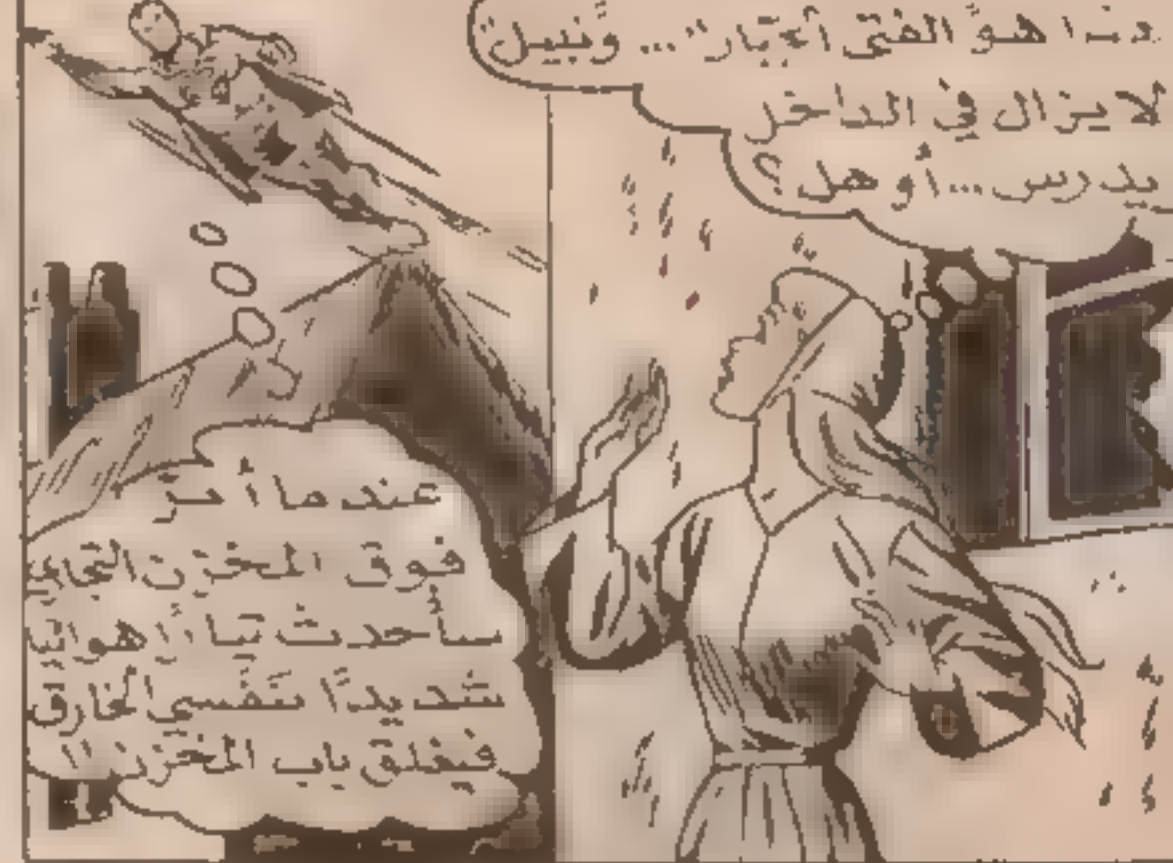 هذا هو الفتى الجبّار... ونبيل
لا يزال في الداخل
يدرس... أو هل ؟
عندما أمرّ
فوق المخزن التجاري
سأحدث تيارًا هوائيا
شديدًا بتنفّسي الخارق
فيغلق باب المخزن !!